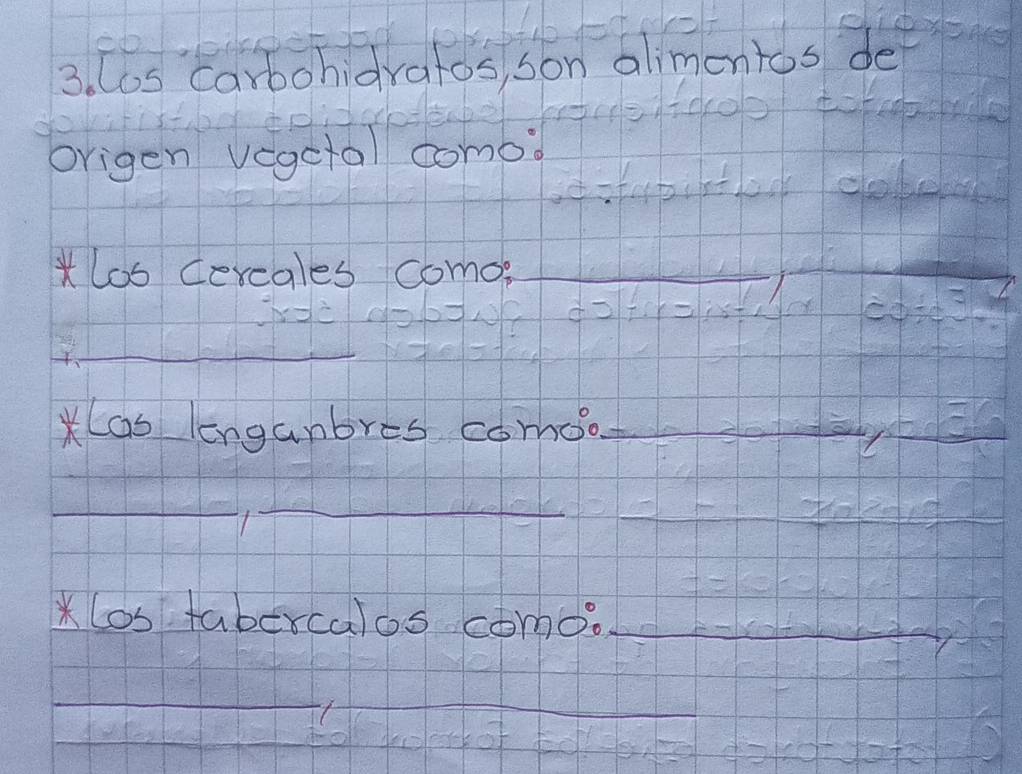 3. Los carbohidratos, son alimentos de
origen vegetal como:
* Los cereales como: ________, ________,
y. ________
* Las lenganbres como: ________, ________
________, ________
* Los tabercalos como: ________,
________, ________